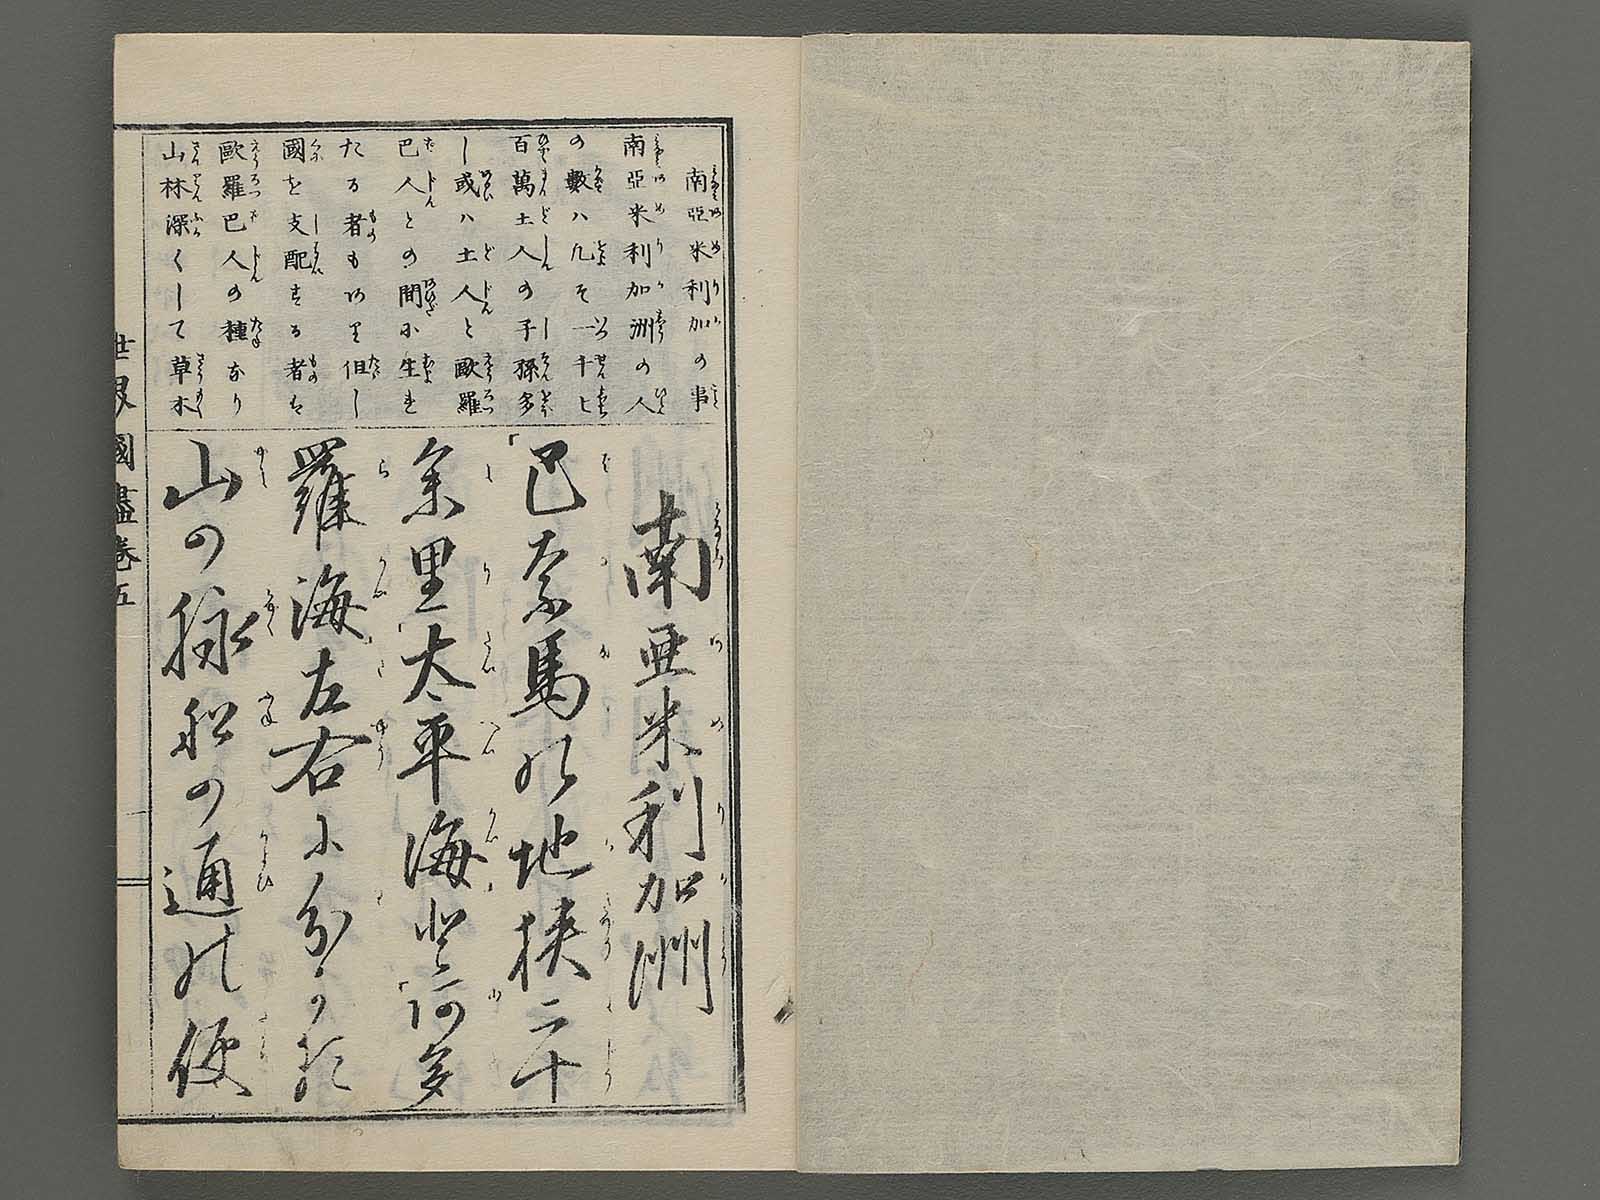 南亞米利加の事
南亞米利加洲の人
の數ハ凡そ一千七
百萬土人の子孫多
し或ハ土人と歐羅
巴人との間に生れ
たる者もあり但し
國を支配する者は
歐羅巴人の種なり
山林深くして草木
南亜米利加洲
「巴奈馬の地狭二十
余里「太平海と「阿多
羅海左右に分かる
山の脉船の通の便
世界國盡卷五